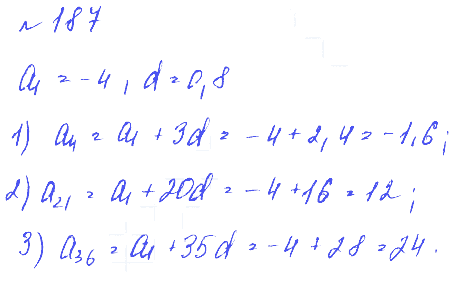 № 187
a₁ = -4, d = 0,8
1) a₄ = a₁ + 3d = -4 + 2,4 = -1,6;
2) a₂₁ = a₁ + 20d = -4 + 16 = 12;
3) a₃₆ = a₁ + 35d = -4 + 28 = 24.